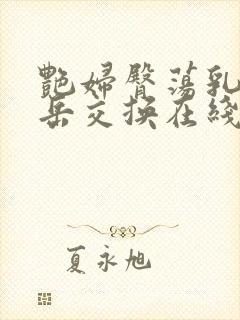 艷婦臀蕩乳
岳交换在綫
夏永旭